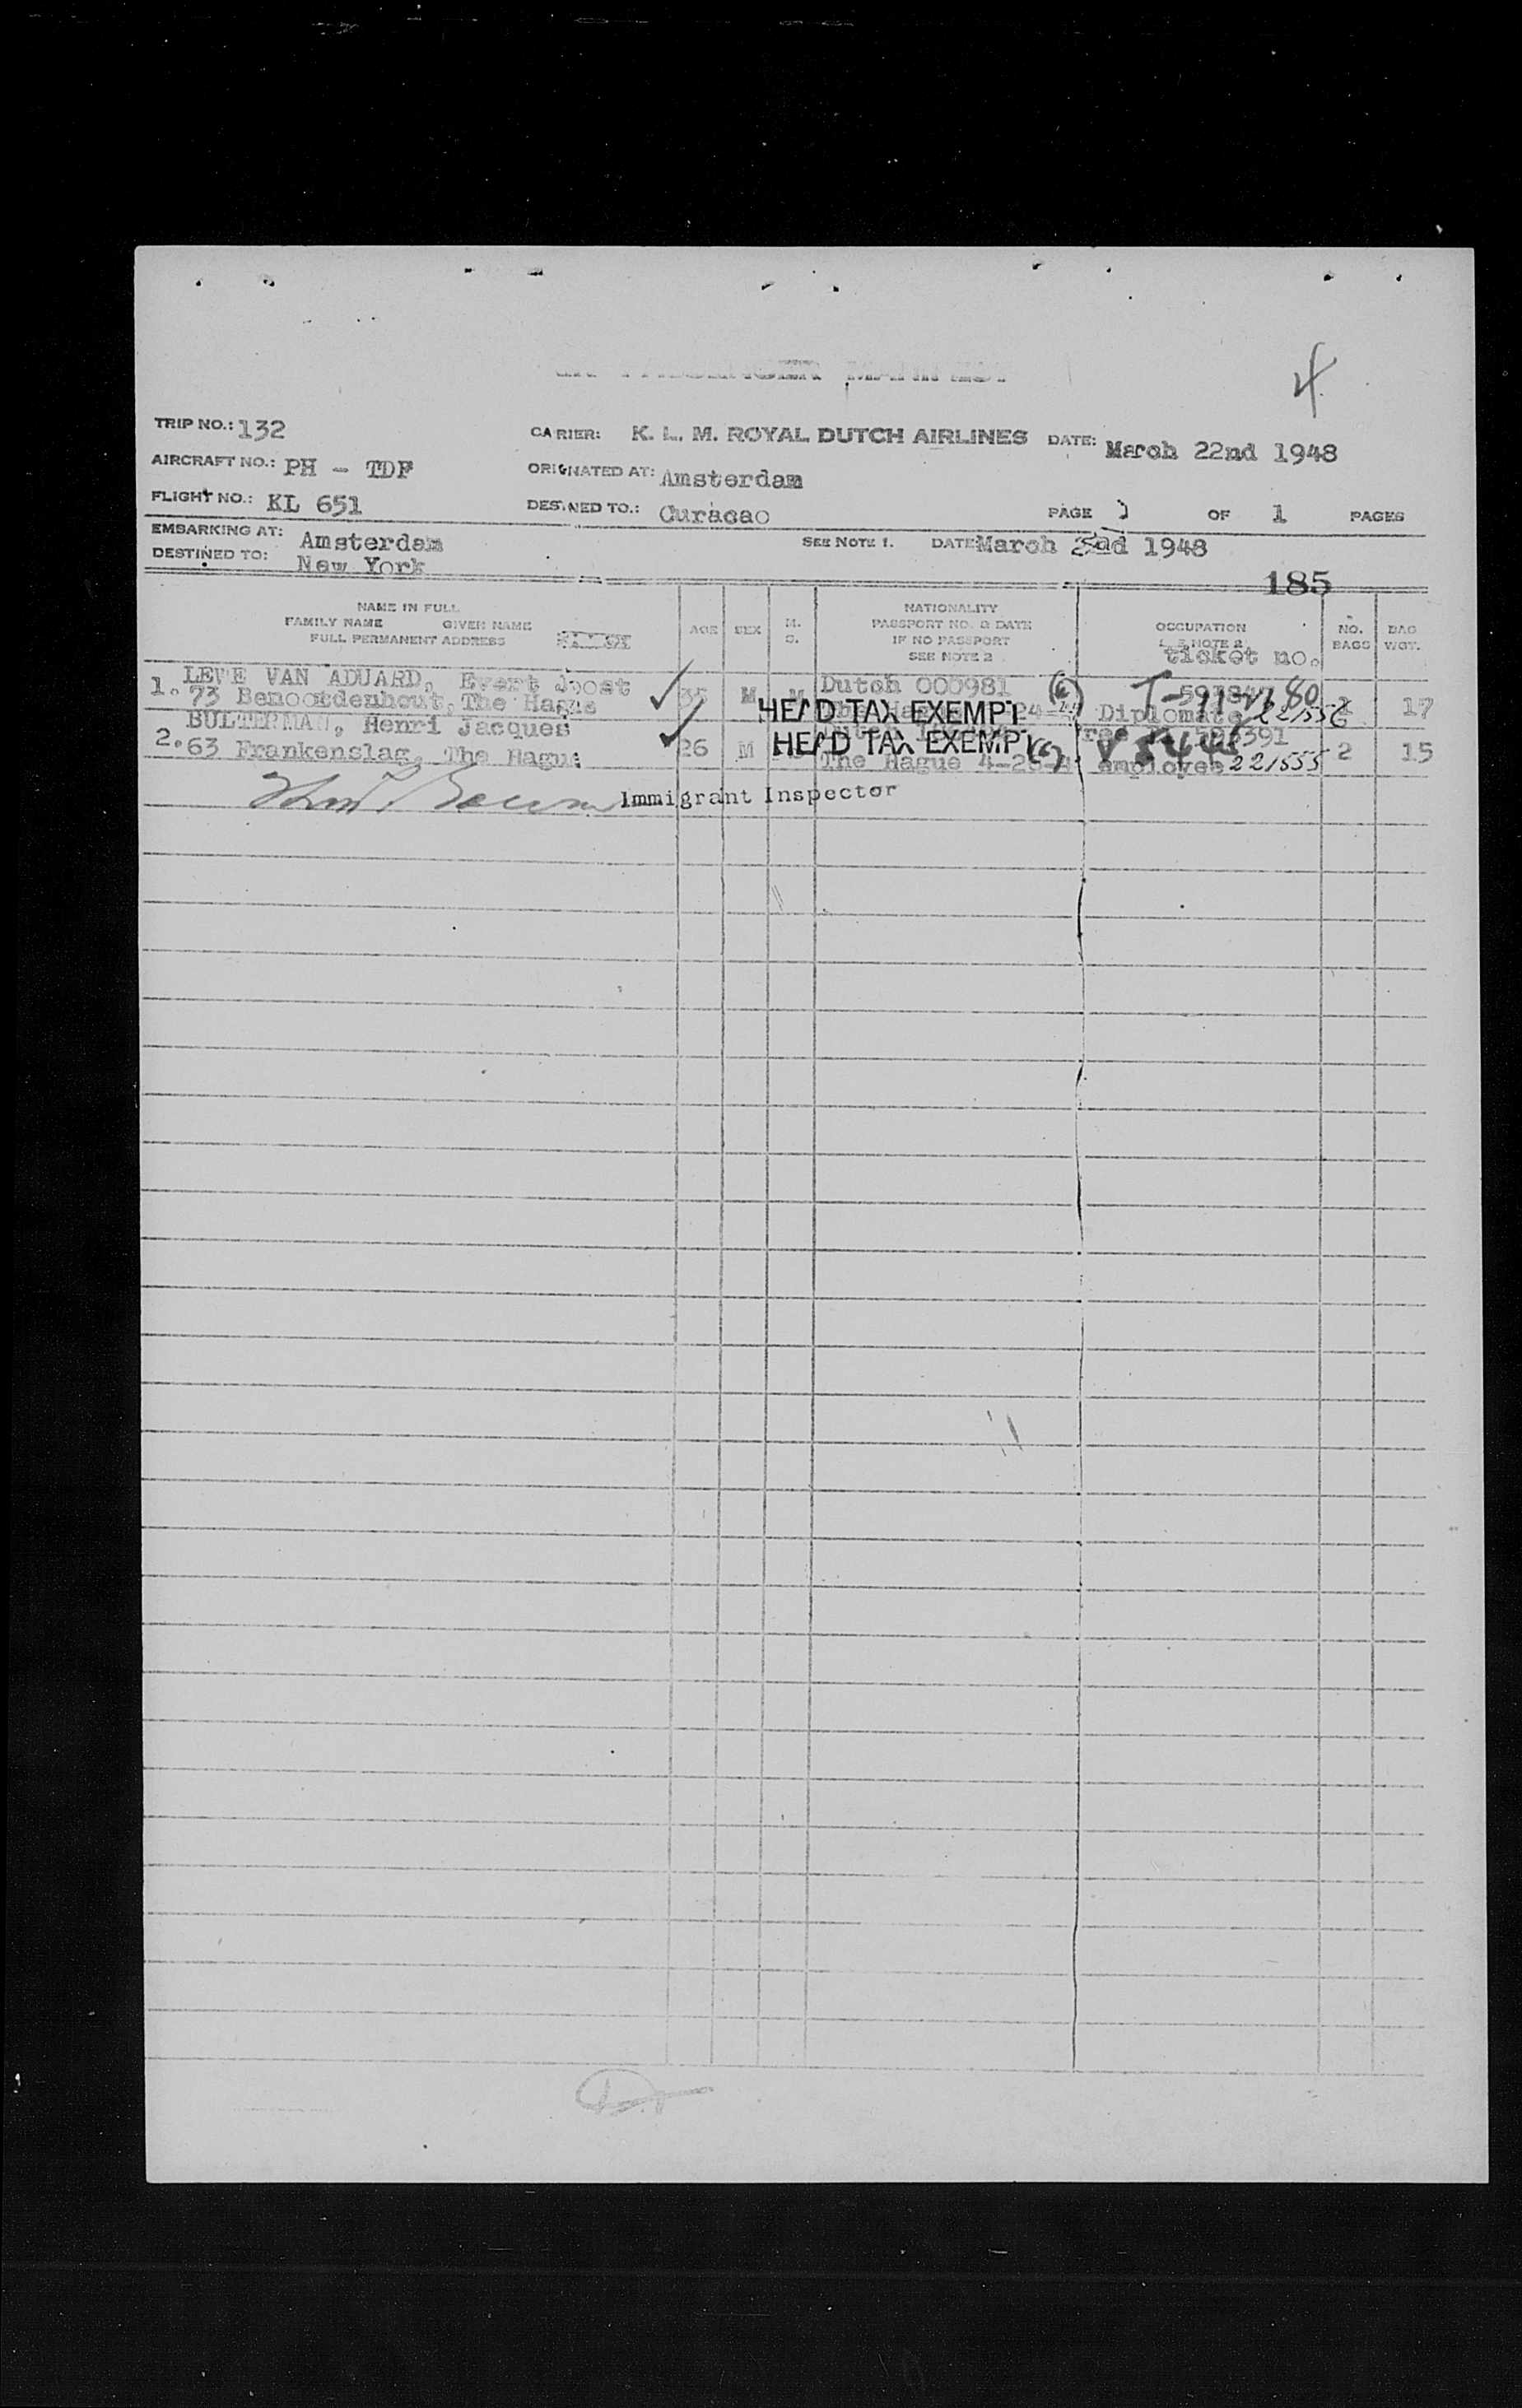 AIR PASSENGER MANIFEST
4
TRIP NO.: 132
CARRIER: K. L. M. ROYAL DUTCH AIRLINES
DATE: March 22nd 1948
AIRCRAFT NO.: PH - TDF
ORIGNATED AT: Amsterdam
FLIGHT NO.: KL 651
DESTINED TO.: Curacao
PAGE 1 OF 1 PAGES
EMBARKING AT: Amsterdam
SEE NOTE 1. DATE March 1948
DESTINED TO: New York
185
NAME IN FULL
FAMILY NAME GIVEN NAME
FULL PERMANENT ADDRESS
AGE
SEX
M.
S.
NATIONALITY
PASSPORT NO. & DATE
IF NO PASSPORT
SEE NOTE 2
OCCUPATION
SEE NOTE 2
ticket no.
NO.
BAGS
BAG
WGT.
1. LEVE VAN ADUARD, Evert Joost 35 M M Dutch 000981
73 Benoordenhout, The Hague HEAD TAX EXEMPT Diplomate 221556 17
2. BULTERMAN, Henri Jacques 26 M HEAD TAX EXEMPT
63 Frankenslag, The Hague The Hague employee 221555 2 15
Immigrant Inspector